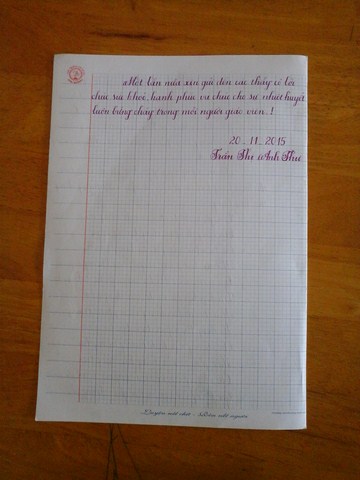 Một lần nữa xin gửi đến các thầy cô lời
chúc sức khoẻ, hạnh phúc và chúc cho sự nhiệt huyết
luôn bừng cháy trong mỗi người giáo viên..!
20 - 11 - 2015
Trần Thị Anh Thư
Luyện nét chữ - Rèn nết người